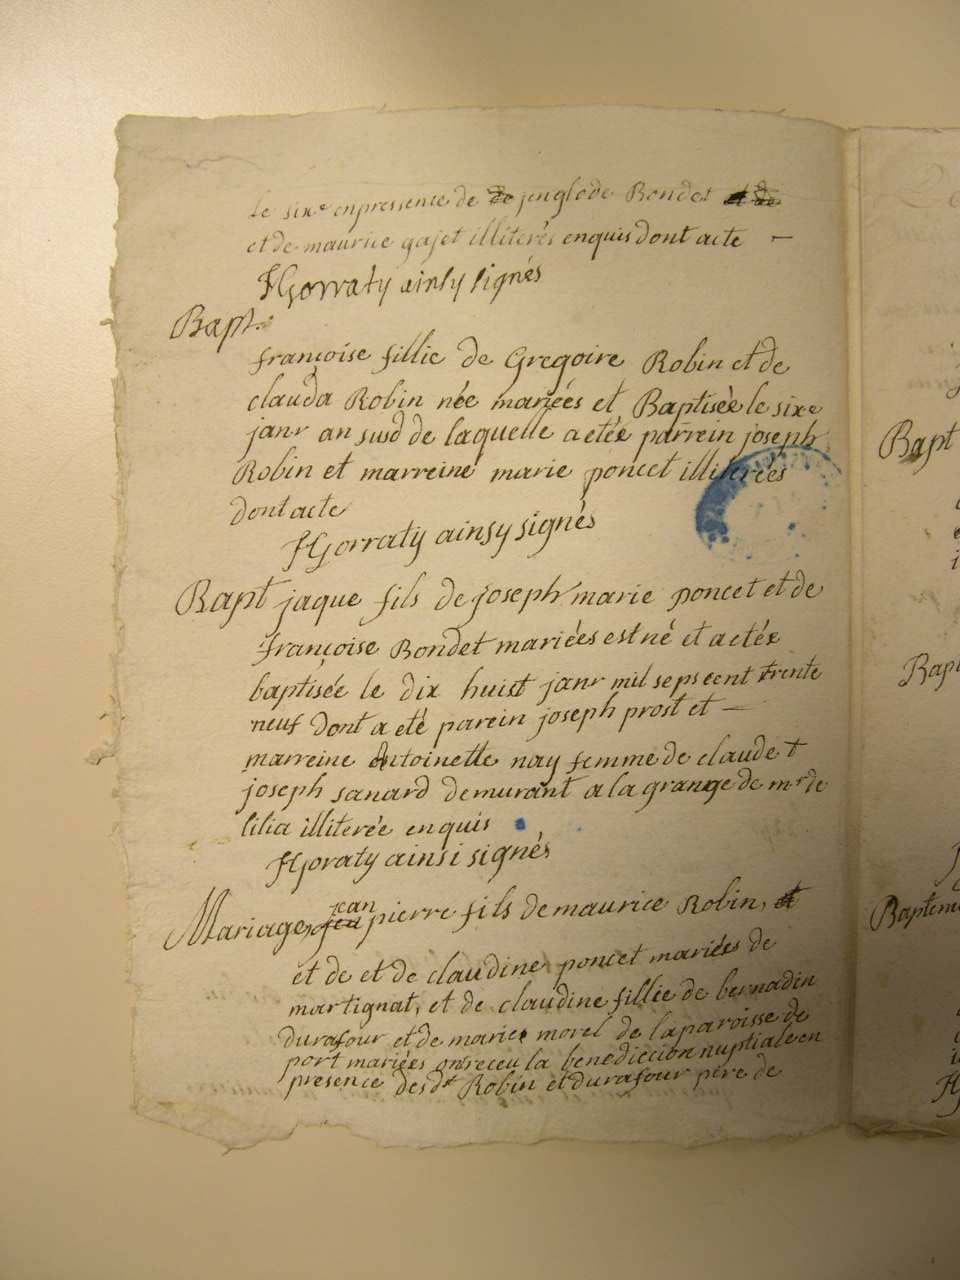 le sixe enpressence de de jenglode Bondet et de
et de maurice gajet illiterés enquis dont acte —
HGorraty ainsy signés
Bapt.
françoise fillie de Gregoire Robin et de
clauda Robin née mariées et Baptisée le sixe
janr an susd de laquelle a etée parrein joseph
Robin et marreine marie poncet illiterées
dont acte
HGorraty ainsy signés
Bapt jaque fils de joseph marie poncet et de
françoise Bondet mariées est né et a etée
baptisée le dix huist janr mil sepscent trente
neuf dont a eté parein joseph prost et —
marreine Antoinette nay femme de claude t
joseph sanard demurant a la grange de mr de
lilia illiterée enquis
HGoraty ainsi signés
Mariage, jean pierre fils de maurice Robin, et
et de et de claudine poncet mariées de
martignat, et de claudine fillie de bernadin
durafour et de marie morel de la paroisse de
port mariées ont receu la benediccion nuptiale en
presence des dt Robin et durafour pere de
Bapt
Bapt
Baptem